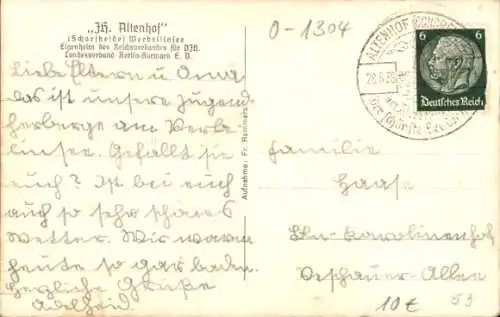 „Jh. Altenhof"
(Schorfheide) Werbellinsee
Eigenheim des Reichsverbandes für DJH.
Landesverband Berlin-Kurmark E. V.
O-1304
Liebe Eltern u. Oma
das ist unsere Jugend-
herberge am Werbe
linsee. Gefällt sie
euch? Ist bei euch
auch so sehr schönes
Wetter. Wir waren
heute so gar baden.
Herzliche Grüße
Adelheid.
Aufnahme: Fr. Remmers
ALTENHOF (SCHORF
28.6.
Der schönste See
6 6
Deutsches Reich
Familie
Haase
Bln-Karolinenhof
Veschauer-Allee
10€ 53